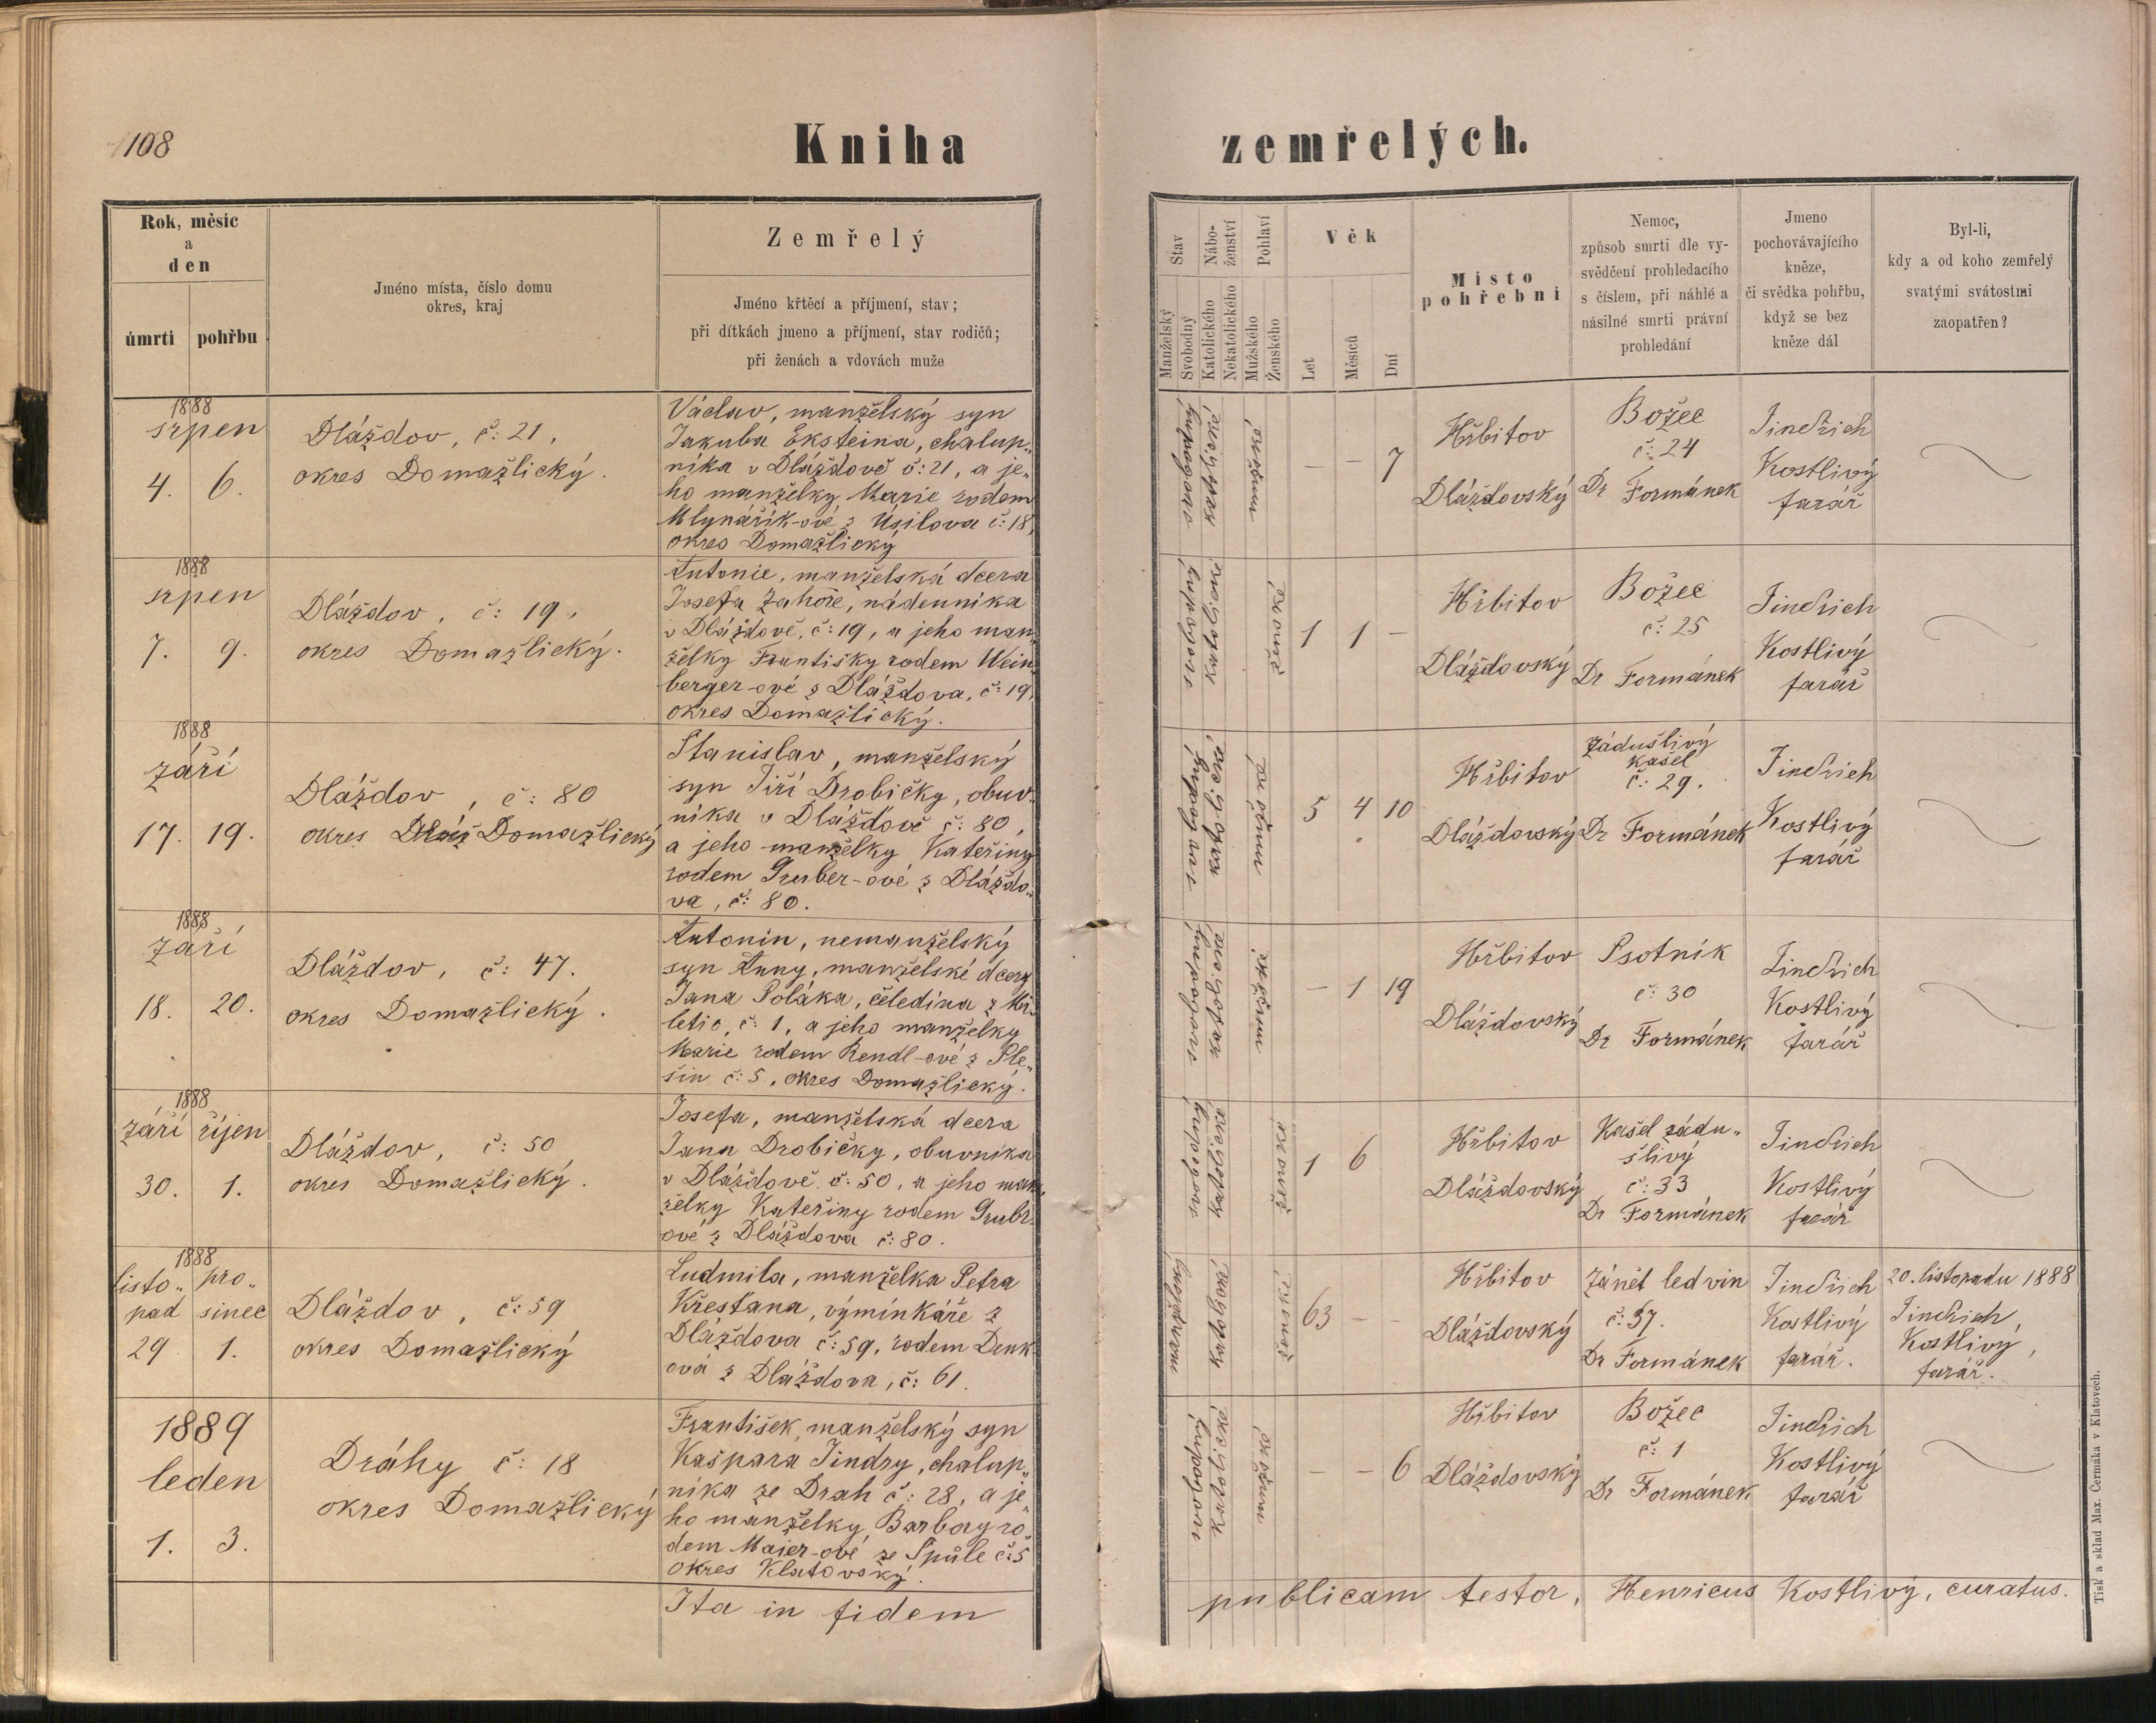 108
Kniha zemřelých.
Rok, měsíc
a
den
úmrti
pohřbu
Jméno místa, číslo domu
okres, kraj
Zemřelý
Jméno křtěcí a příjmení, stav;
při dítkách jmeno a příjmení, stav rodičů;
při ženách a vdovách muže
Stav
Manželský
Svobodný
Nábo-
ženství
Katolického
Nekatolického
Pohlaví
Mužského
Ženského
Věk
Let
Měsíců
Dní
Místo
pohřební
Nemoc,
způsob smrti dle vy-
svědčení prohledacího
s číslem, při náhlé a
násilné smrti právní
prohledání
Jmeno
pochovávajícího
kněze,
či svědka pohřbu,
když se bez
kněze dál
Byl-li,
kdy a od koho zemřelý
svatými svátostmi
zaopatřen?
1888
srpen
4. 6.
Dláždov, č: 21,
okres Domažlický.
Václav, manželský syn
Jakuba Eksteina, chalup„
níka v Dláždově č: 21, a je„
ho manželky Marie rodem
Mlynářík-ové z Úsilova č: 18,
okres Domažlický
svobodný
katolické
mužské
– – 7
Hřbitov
Dláždovský
Božec
č: 24
Dr Formánek
Jindřich
Kostlivý
farář
1888
srpen
7. 9.
Dláždov, č: 19,
okres Domažlický.
Antonie, manželská dcera
Josefa Zahoře, nádenníka
v Dláždově, č: 19, a jeho man„
želky Františky rodem Wein„
berger-ové z Dláždova, č: 19,
okres Domažlický.
svobodný
katolické
ženské
1 1 –
Hřbitov
Dláždovský
Božec
č: 25
Dr Formánek
Jindřich
Kostlivý
farář
1888
září
17. 19.
Dláždov, č: 80
okres Dláž Domažlický
Stanislav, manželský
syn Jiří Drobičky, obuv„
níka v Dláždově č: 80,
a jeho manželky Kateřiny
rodem Gruber-ové z Dláždo„
va, č: 80.
svobodný
katolické
mužské
5 4 10
Hřbitov
Dláždovský
Zádušlivý
kašel
č: 29.
Dr Formánek
Jindřich
Kostlivý
farář
1888
září
18. 20.
Dláždov, č: 47.
okres Domažlický.
Antonín, nemanželský
syn Anny, manželské dcery
Jana Poláka, čeledína z Mi„
letic, č: 1, a jeho manželky
Marie rodem Rendl-ové z Ple„
šin č: 5, okres Domažlický.
svobodný
katolické
mužské
– 1 19
Hřbitov
Dláždovský
Psotník
č: 30
Dr Formánek
Jindřich
Kostlivý
farář
1888
září říjen
30. 1.
Dláždov, č: 50
okres Domažlický.
Josefa, manželská dcera
Jana Drobičky, obuvníka
v Dláždově č: 50, a jeho man„
želky Kateřiny rodem Grubr„
ové z Dláždova č: 80.
svobodný
katolické
ženské
1 6
Hřbitov
Dláždovský
Kašel zádu„
šlivý
č: 33
Dr Formánek
Jindřich
Kostlivý
farář
1888
listo„ pro„
pad sinec
29 1.
Dláždov, č: 59
okres Domažlický
Ludmila, manželka Petra
Křesťana, výminkáře z
Dláždova č: 59, rodem Denk
ová z Dláždova, č: 61.
manželský
katolické
ženské
63 – –
Hřbitov
Dláždovský
Zánět ledvin
č: 37.
Dr Formánek
Jindřich
Kostlivý
farář.
20. listopadu 1888
Jindřich
Kostlivý,
farář.
1889
leden
1. 3.
Dráhy č: 18
okres Domažlický
František, manželský syn
Kašpara Jindry, chalup„
níka ze Drah č: 28, a je„
ho manželky Barbory ro„
dem Maier-ové ze Spůle č: 5
okres Klatovský.
svobodný
katolické
mužské
– – 6
Hřbitov
Dláždovský
Božec
č: 1
Dr Formánek
Jindřich
Kostlivý
farář
Ita in fidem publicam testor, Henricus Kostlivý, curatus.
Tisk a sklad Max. Čermáka v Klatovech.